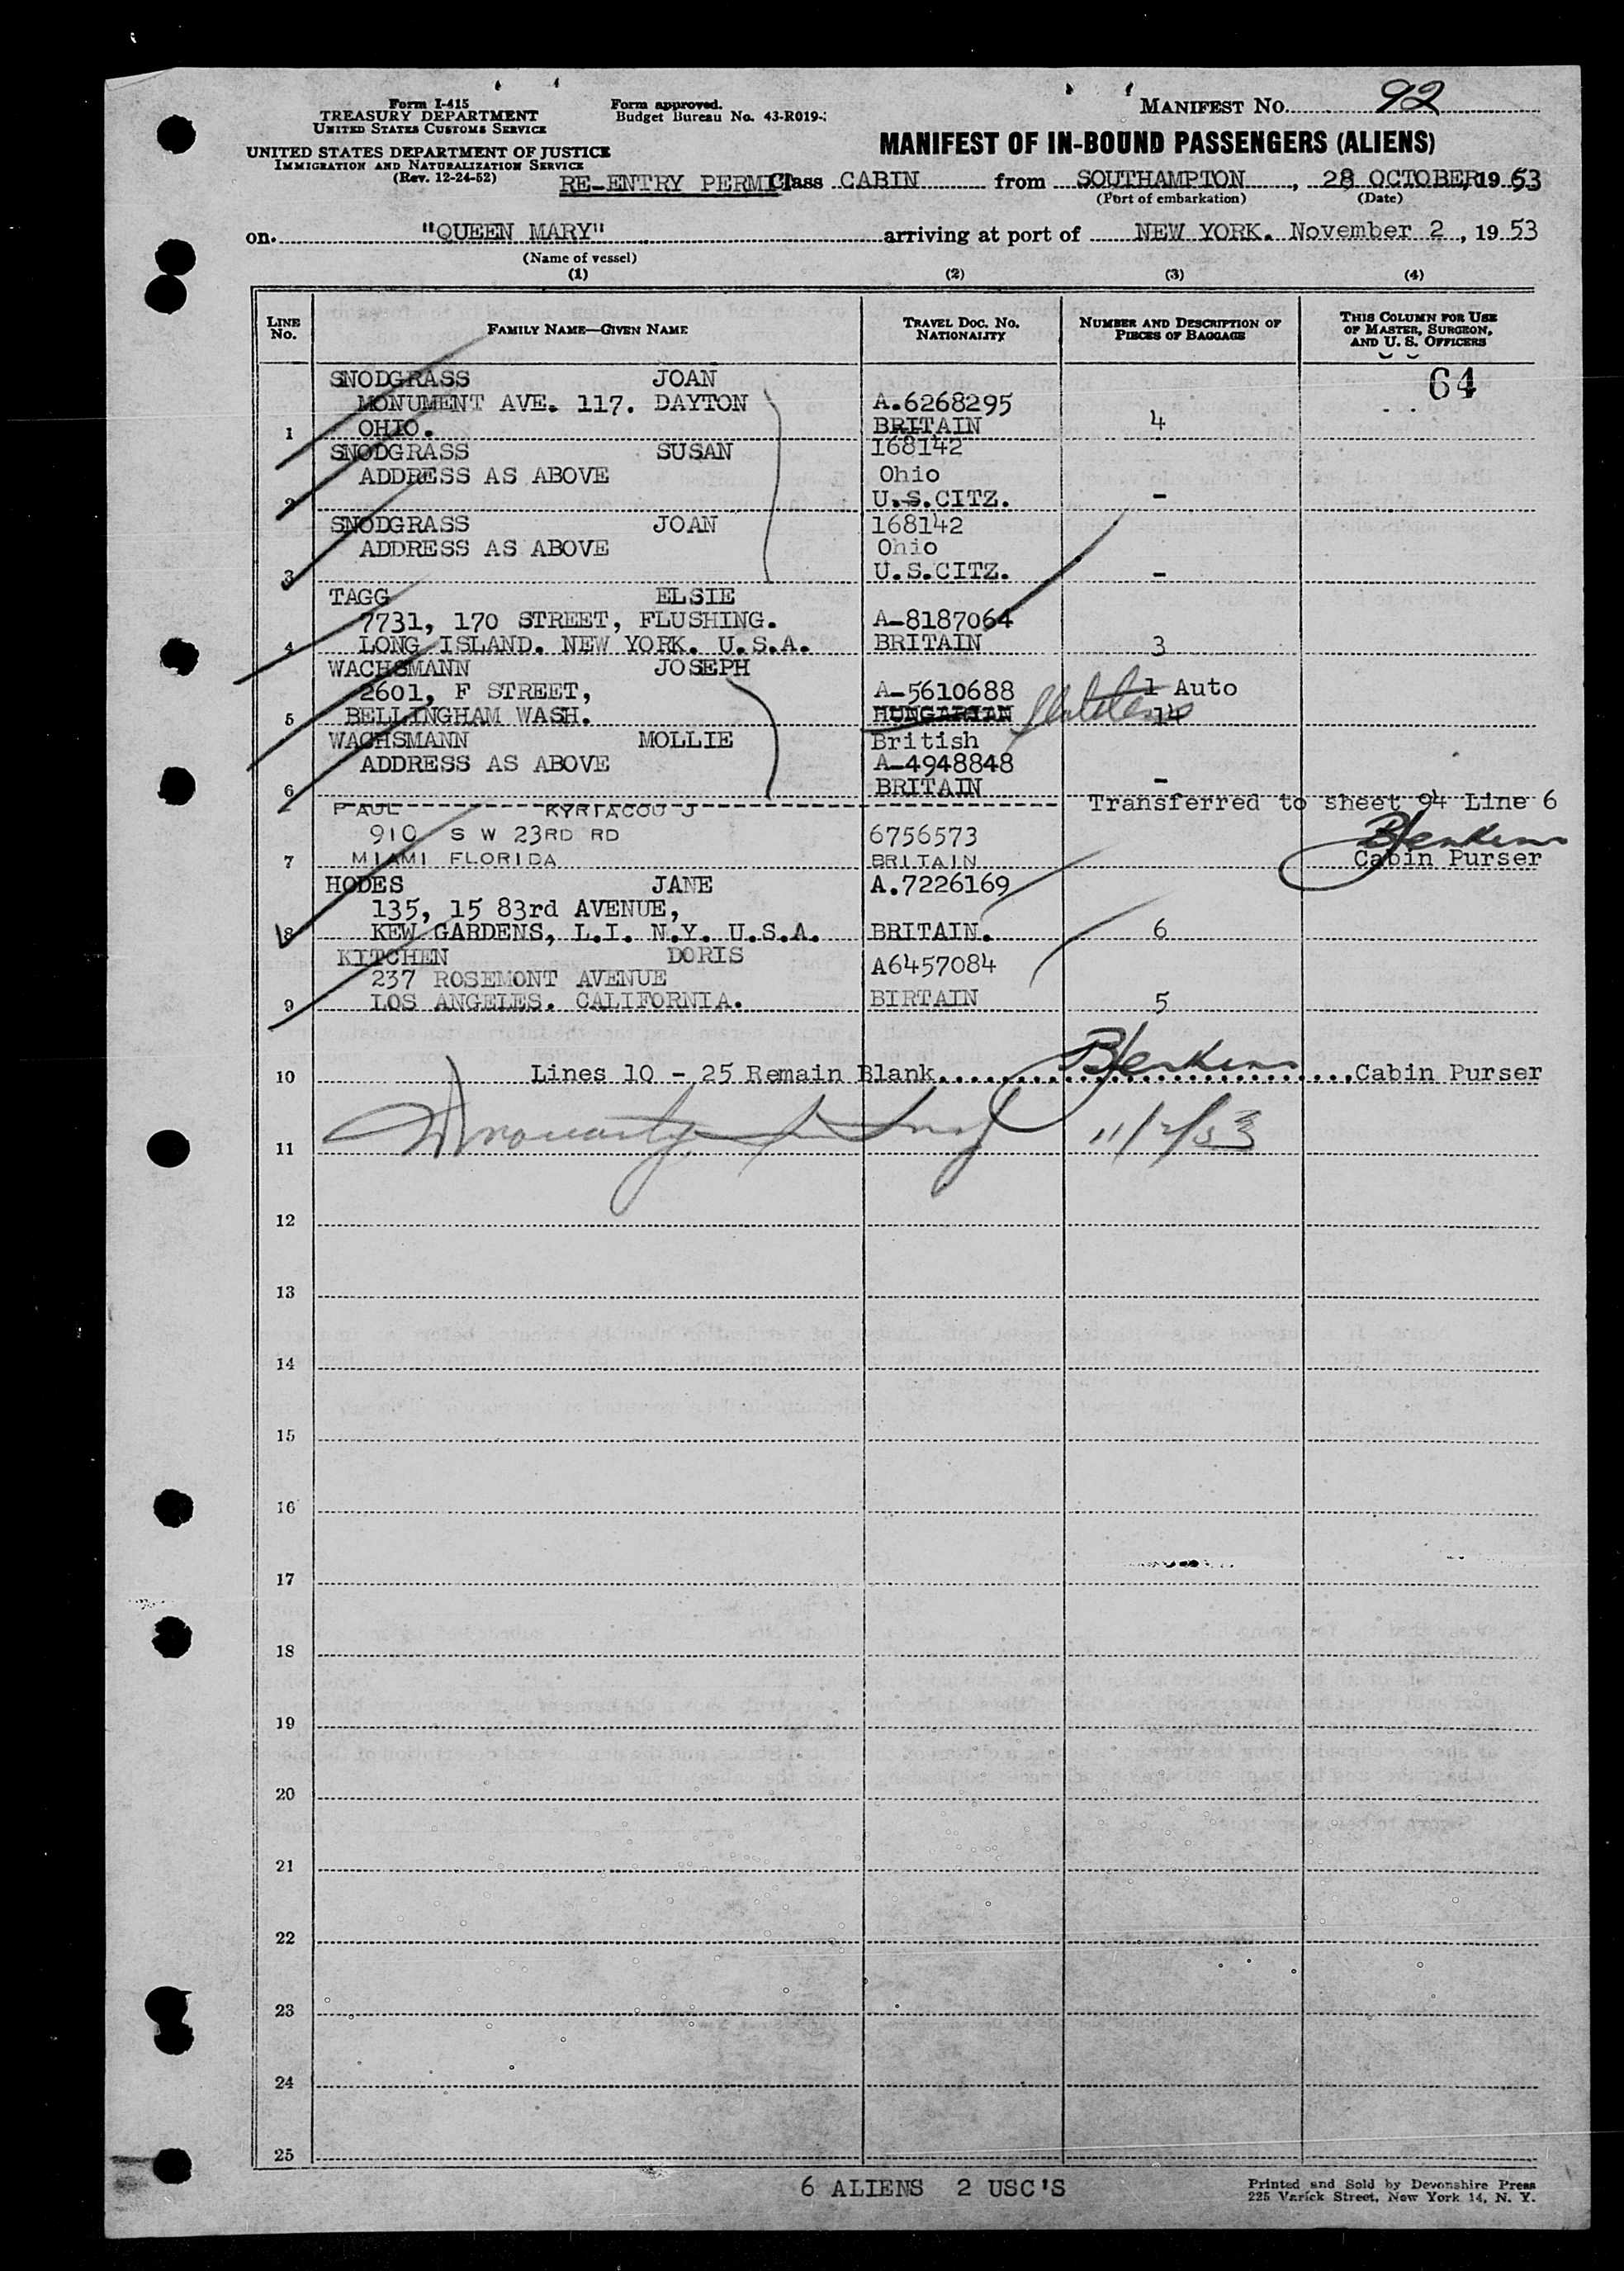 Form I-415
TREASURY DEPARTMENT
UNITED STATES CUSTOMS SERVICE
UNITED STATES DEPARTMENT OF JUSTICE
IMMIGRATION AND NATURALIZATION SERVICE
(Rev. 12-24-52)
Form approved.
Budget Bureau No. 43-R019-
MANIFEST No. 92
MANIFEST OF IN-BOUND PASSENGERS (ALIENS)
RE-ENTRY PERMIT Class CABIN from SOUTHAMPTON, 28 OCTOBER, 1953
(Port of embarkation) (Date)
on "QUEEN MARY" arriving at port of NEW YORK. November 2, 1953
(Name of vessel)
(1) (2) (3) (4)
LINE No. FAMILY NAME—GIVEN NAME TRAVEL DOC. No. NATIONALITY NUMBER AND DESCRIPTION OF PIECES OF BAGGAGE THIS COLUMN FOR USE OF MASTER, SURGEON, AND U. S. OFFICERS
64
SNODGRASS JOAN
MONUMENT AVE. 117. DAYTON A.6268295
1 OHIO. BRITAIN 4
SNODGRASS SUSAN 168142
ADDRESS AS ABOVE Ohio
2 U.S.CITZ. -
SNODGRASS JOAN 168142
ADDRESS AS ABOVE Ohio
3 U.S.CITZ. -
TAGG ELSIE
7731, 170 STREET, FLUSHING. A-8187064
4 LONG ISLAND. NEW YORK. U.S.A. BRITAIN 3
WACHSMANN JOSEPH
2601, F STREET, A-5610688 1 Auto
5 BELLINGHAM WASH. HUNGARIAN 14
WACHSMANN MOLLIE British
ADDRESS AS ABOVE A-4948848
6 BRITAIN -
PAUL KYRIACOU J Transferred to sheet 94 Line 6
910 S W 23RD RD 6756573 BJenkins
7 MIAMI FLORIDA BRITAIN Cabin Purser
HODES JANE A.7226169
135, 15 83rd AVENUE,
8 KEW GARDENS, L.I. N.Y. U.S.A. BRITAIN. 6
KITCHEN DORIS A6457084
237 ROSEMONT AVENUE
9 LOS ANGELES. CALIFORNIA. BIRTAIN 5
10 Lines 10 - 25 Remain Blank BJenkins Cabin Purser
11 11/2/53
12
13
14
15
16
17
18
19
20
21
22
23
24
25
6 ALIENS 2 USC'S
Printed and Sold by Devonshire Press
225 Varick Street, New York 14, N. Y.